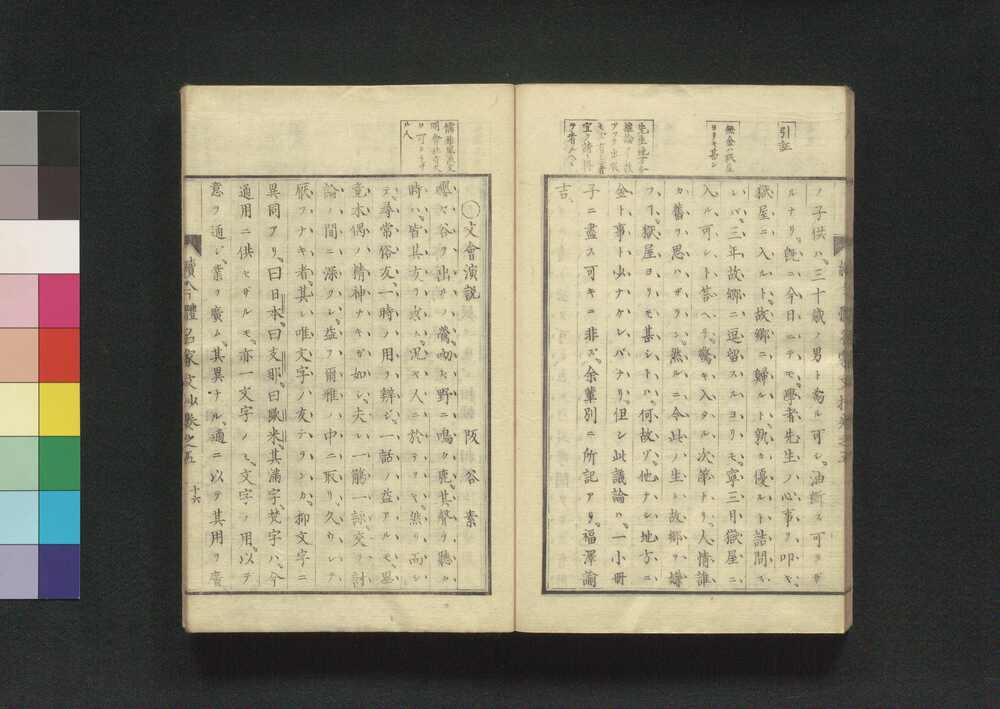 引証
ノ子供ハ、三十歳ノ男ト為ル可シ、油断ス可ラザ
ルナリ、既ニ今日ニテモ、学者先生ノ心事ヲ叩キ、
獄屋ニ入ルト、故郷ニ歸ルト、孰カ優ルト詰問ス
レバ、三年故郷ニ逗留スルヨリモ、寧三月獄屋ニ
入ル可シト答ヘテ、驚キ入タル次第ナリ、人情誰
カ舊ヲ思ハザラン、然ルニ今此ノ生レ故郷ヲ嫌
フ、獄屋ヨリモ甚シトハ、何故ゾ、他ナシ地方ニ
金ト事ト少ナケレバナリ、但シ此議論ハ、一小冊
子ニ盡ス可キニ非ズ、余輩別ニ所記アリ、福澤諭
吉、
〇文會演説 阪谷素
嚶々谷ヲ出ルノ鶯、呦々野ニ鳴ク鹿、其聲ヲ聽ク
時ハ、皆其友ヲ求ム、況ヤ人ニ於テヲヤ、然リ而シ
テ、尋常俗友、一時ノ用ヲ辨ジ、一話ノ益アルモ、畢
竟木偶ノ精神ナキガ如シ、夫レ一觴一詠、交ヲ討
論ノ間ニ深クシ、益ヲ爾雅ノ中ニ取リ、久クシテ
厭フナキ者、其レ唯文字ノ友ナランカ、抑文字ニ
異同アリ、曰日本、曰支那、曰歐米、其滿字、梵字ハ、今
通用ニ供セザルモ、亦一文字ノミ、文字ノ用、以テ
意ヲ通ジ、業ヲ廣ム、其異ナル、適ニ以テ其用ヲ廣
續今體名家文抄卷之五 十六